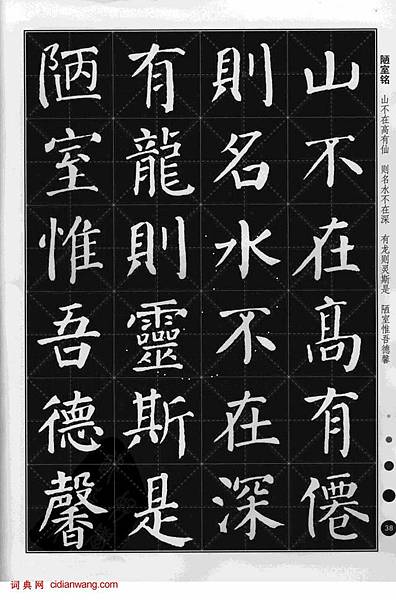 山不在高有僊
則名水不在深
有龍則靈斯是
陋室惟吾德馨
陋室铭
山不在高有仙 则名水不在深 有龙则灵斯是 陋室惟吾德馨
38
词典网 cidianwang.com